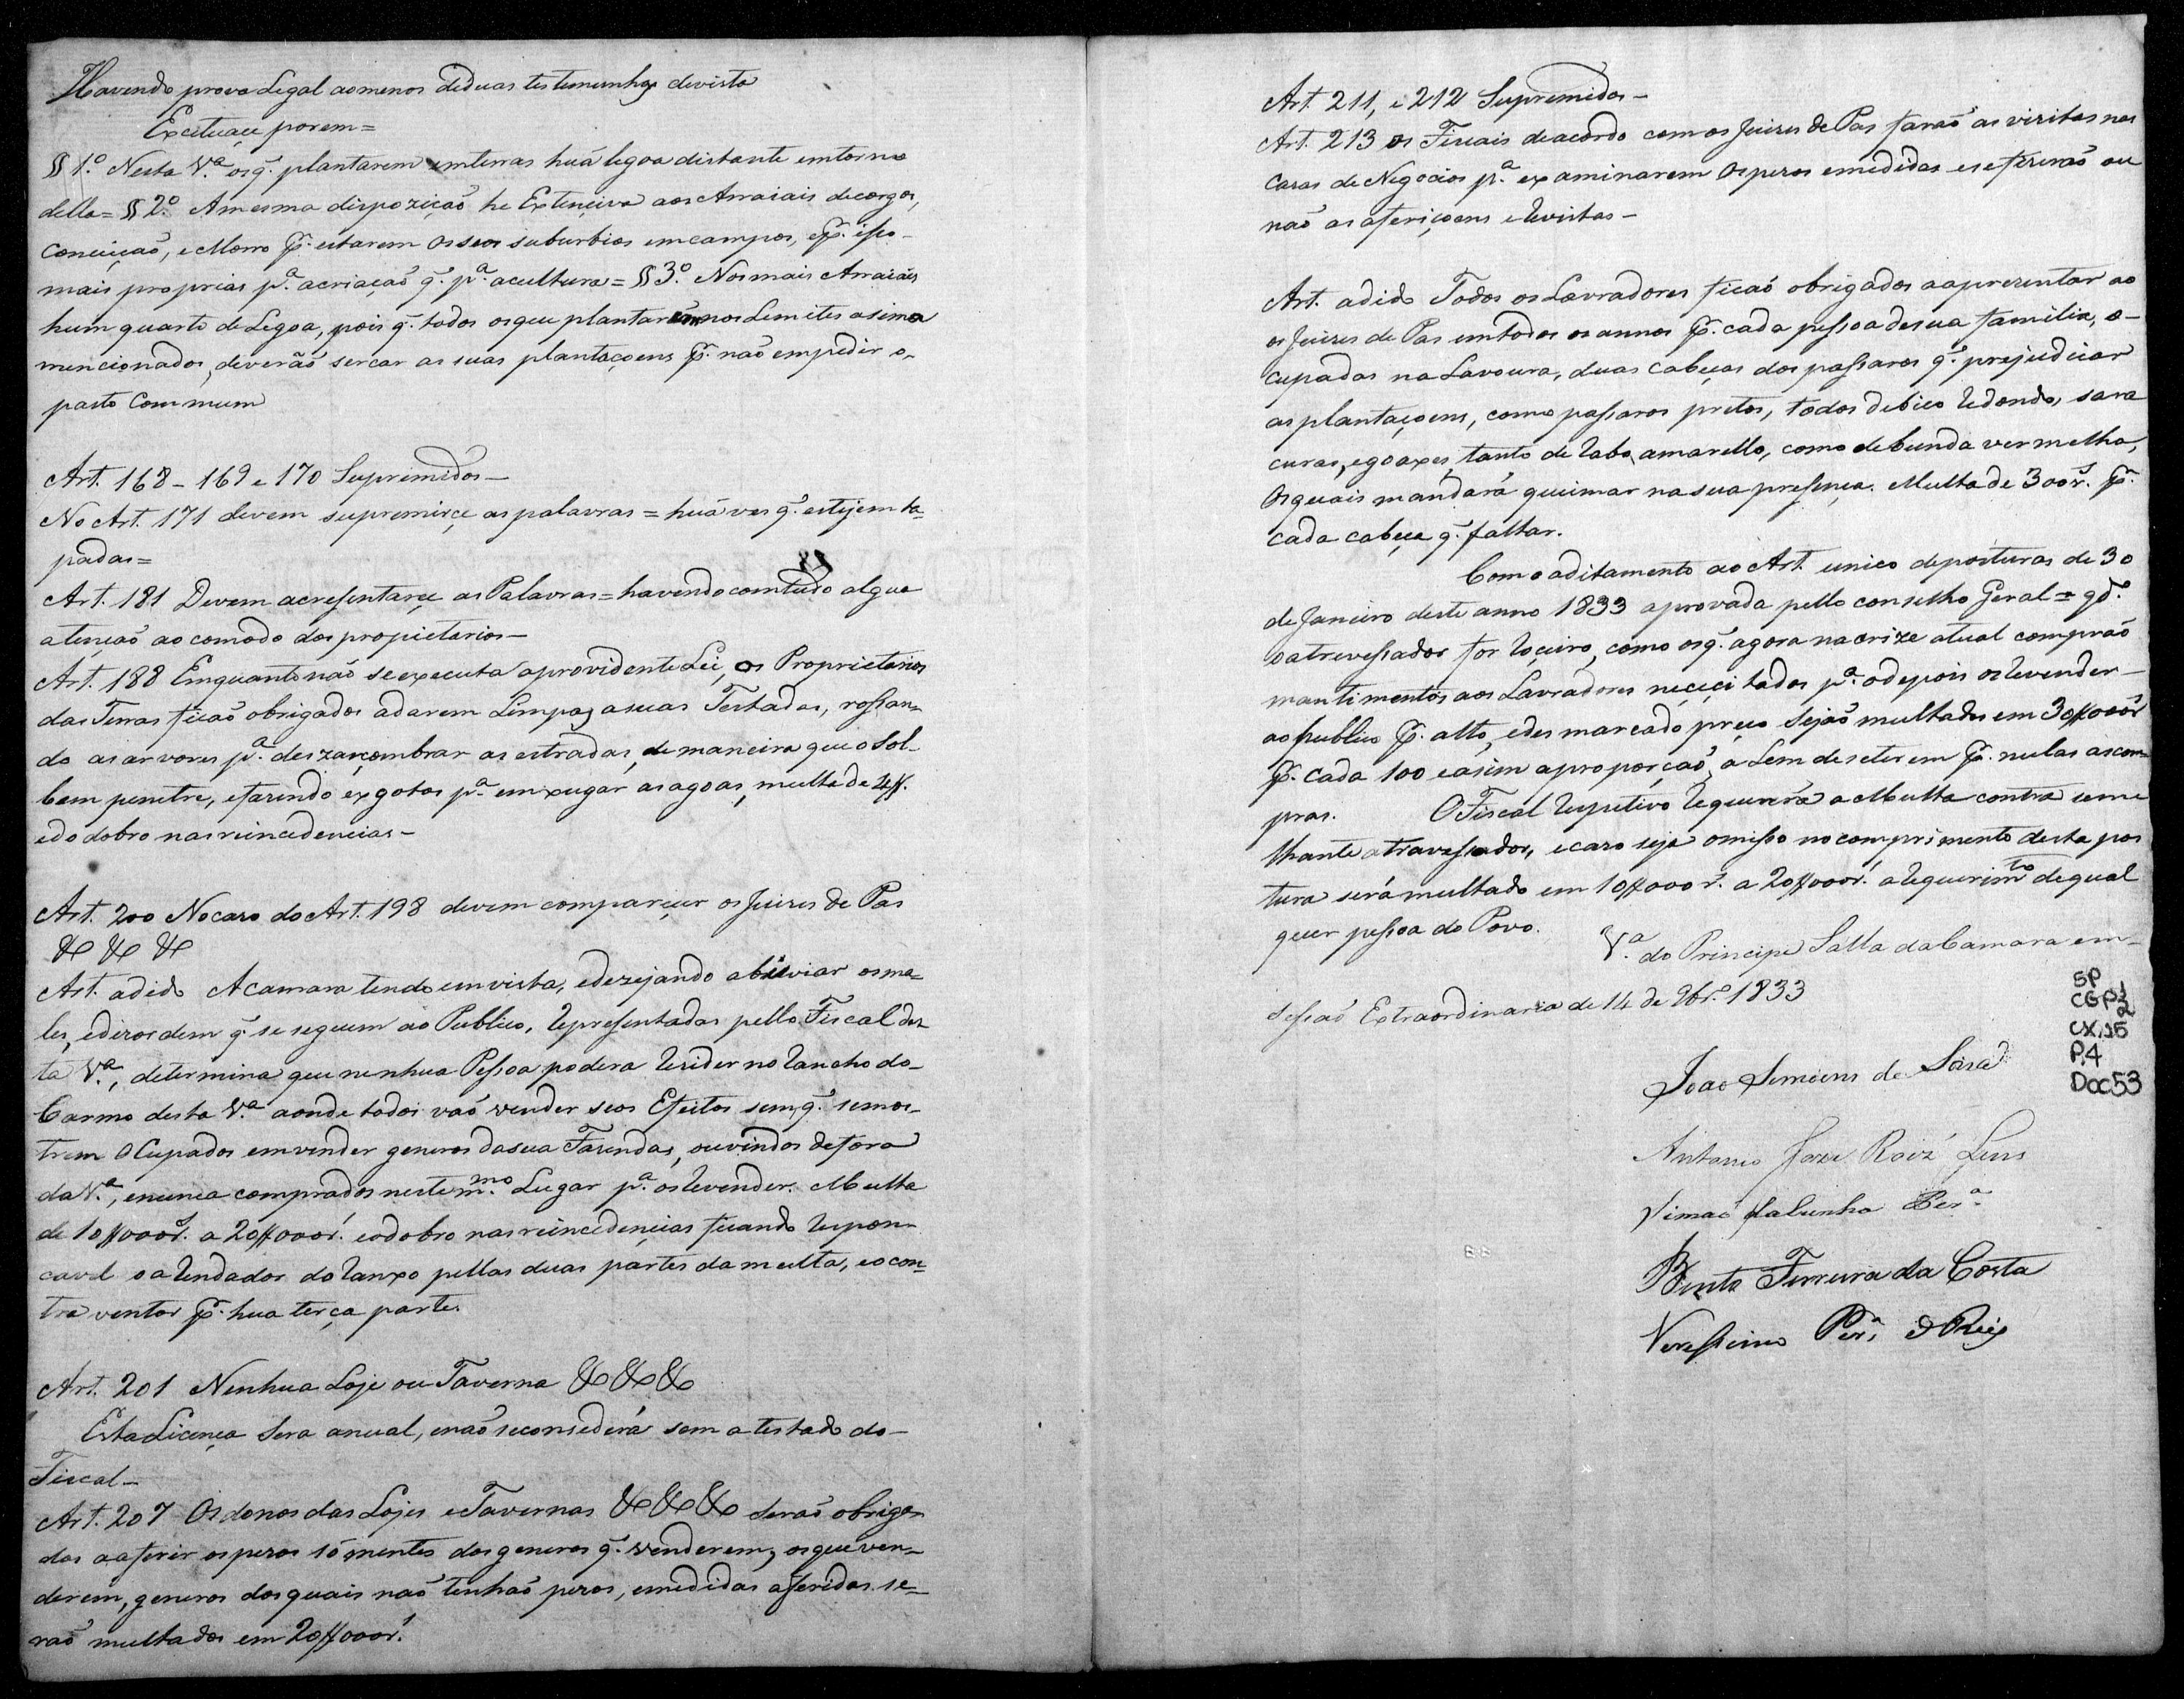 Havendo prova Legal aomenos deduas testemunhas devista
Excetuace porem=
§ 1.º Nesta V.ª os q̃. plantarem emterras huã legoa distante emtorno
della= § 2.º Amesma dispozição he Extenciva aos Arraiais decorgos,
Conceição, e Morro p̃. estarem osseos suburbios emcampos, e p̃. isso-
mais proprias p.ª acriação q̃. p.ª acultura= § 3.º Nosmais Arraiáis
hum quarto de Legoa, pois q̃. todos osque plantarem nos Lemites asima
mencionados, deverão sercar as suas plantaçoens p̃. não empedir o-
pasto Commum
Art. 168 - 169 e 170 Suprimidos-
No Art. 171 devem supremirce as palavras = huã ves q̃. estejem ta-
padas=
Art. 181 Devem acresentarce as Palavras= havendo comtudo algua
atenção ao comodo dos propietarios-
Art. 188 Emquanto não se executa aprovidente Lei, os Proprietarios
das Terras ficaõ obrigados adarem Limpas asuas Testadas, rossan-
do as arvores p.ª deszarsombrar as estradas, de maneira que o Sol-
bem penetre, efazendo exgotos p.ª emxugar as agoas, multa de 4$.
edo dobro nas reincedencias-
Art. 200 Nocaso do Art. 198 devem compareçer os Juizes de Pas
& & &
Art. adido A Camara tendo emvista, edezejando abiviar osma-
les, edizordem q̃ se seguem ao Publico, Representadas pello Fiscal des-
ta V.ª, determina que nenhua Pessoa podera Rezider no Rancho do-
Carmo desta V.ª aonde todos vaõ vender seos Efeitos sem q̃. semos-
trem Ocupados emvender generos dasua Fazendas, ouvindos defora
da V.ª, enunca comprados neste m.mo Lugar p.ª os Revender. Multa
de 10$000r.ˢ a 20$000r.ˢ eodobro nas reincedençias ficando Respon-
cavel o aRendador do Ranxo pellas duas partes da multa, eocon-
tra ventor p̃. hua terça parte.
Art. 201 Nenhua Loje ou Taverna & & &
Esta Licença Sera anual, enaõ seconsederá sem atestado do-
Fiscal-
Art. 207 Os donos das Lojes e Tavernas & & & Seraõ obriga-
dos aaferir ospezos sómentes dos generos q̃. venderem, osque ven-
derem, generos dosquais naõ tenhaõ pezos, emedidas aferidas se-
raõ multados em 20$000r.ˢ
Art. 211, e 212 Supremidos-
Art. 213 os Fiscais deacordo com os Juizes de Pas faraõ as vizitas nas
Cazas de Negocios p.ª examinarem Ospezos emedidas esefizeraõ ou
naõ as aferiçoens e Revistas-
Art. adido Todos os Lavradores ficaõ obrigados aaprezentar ao
os Juizes de Pas emtodos os annos p̃. cada pessoa desua familia, o-
cupadas na Lavoura, duas Cabeças dos passaros q̃. prejudicar
as plantaçoens, como passaros pretos, todos debico Redondo, sara
curas, egoaxes, tanto de Rabo amarello, como debunda vermelha,
Osquais mandará queimar na sua presença. Multa de 300r.ˢ p̃.
cada cabeça q̃. faltar.
Como aditamento ao Art. unico deposturas de 30
de Janeiro deste anno 1833 aprovada pello conselho Geral = qd.º
o atrevessador for Roçeiro, como os q̃. agora nacrize atual compraõ
mantimentos aos Lavradores neçeçitados p.ª odepois os Revender-
ao publico p̃. alto, edesmarcado preço Sejaõ multados em 30$000r.ˢ
p̃. cada 100 easim aproporçaõ, a Lem deseterem p̃. nulas as com-
pras. O Fiscal Respetivo Requererá a Multa contra seme
lhante atravessador, ecazo seja omisso nocomprimento desta pos
tura será multado em 10$000r.ˢ a 20$000r.ˢ a Requerim.to dequal
quer pessoa do Povo. V.ª do Principe Salla da Camara em-
Sessaõ Extraordinaria de 14 de 9br.º 1833
SP
CGP1
2
CX,15
P.4
Doc53
João Simoens de Soiza
Antonio Joze Roiz Lins
Simaõ daCunha Per.ª
Bento Ferreira da Costa
Veressimo Per.ª d Reis